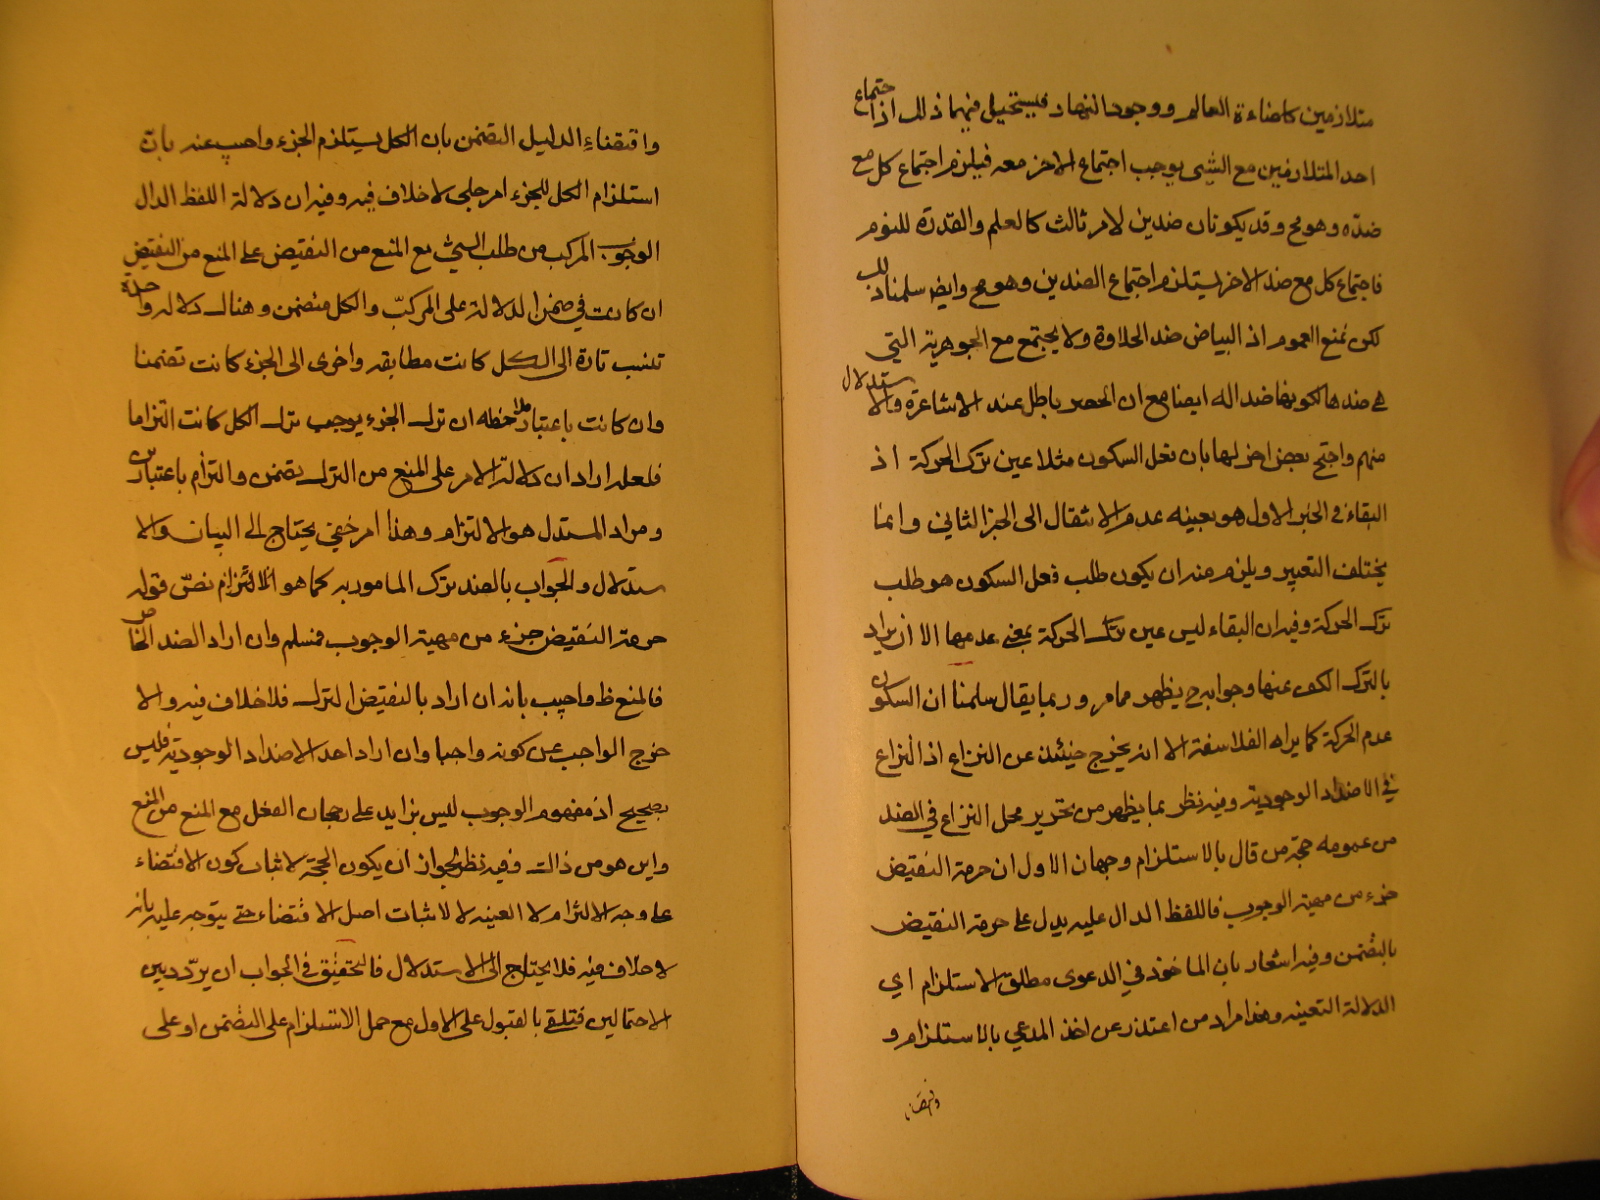 متلازمين كاضاءة العالم ووجود النهار فيستحيل فيهما ذلك اذ اجتماع
احد المتلازمين مع الشئ يوجب اجتماع الاخر معه فيلزم اجتماع كل مع
ضده وهو مح وقد يكونان ضدين لامر ثالث كالعلم والقدرة للنوم
فاجتماع كل مع ضد الاخر يستلزم اجتماع الضدين وهو مح وايض سلمنا ذلك
لكن نمنع العموم اذ البياض ضد الحلاوة ولا يجتمع مع الجوهرية التي
هي ضدها لكونها ضد اله ايضا مع ان الحصر باطل عند الاشاعرة والاستدلال
منهم واحتج بعض اخر لها بان فعل السكون مثلا عين ترك الحركة اذ
البقاء في الحيز الاول هو بعينه عدم الانتقال الى الحيز الثاني وانما
يختلف التعبير ويلزم منه ان يكون طلب فعل السكون هو طلب
ترك الحركة وفيه ان البقاء ليس عين ترك الحركة بمعنى عدمها الا ان يراد
بالترك الكف عنها وجوابه ح يظهر مما مر وربما يقال سلمنا ان السكون
عدم الحركة كما يراه الفلاسفة الا انه يخرج حينئذ عن النزاع اذ النزاع
في الاضداد الوجودية وفيه نظر بما يظهر من تحرير محل النزاع في الضد
من عمومه حجة من قال بالاستلزام وجهان الاول ان حرمة النقيض
جزء من مهية الوجوب فاللفظ الدال عليه يدل على حرمة النقيض
بالتضمن وفيه اشعار بان الماخوذ في الدعوى مطلق الاستلزام اي
الدلالة التبعية وهذا مراد من اعتذر عن اخذ المدعي بالاستلزام و
واقتضاء الدليل التضمن بان الكل يستلزم الجزء واجيب عنه بان
استلزام الكل للجزء امر جلي لا خلاف فيه وفيه ان دلالة اللفظ الدال
الوجوب المركب من طلب الشئ مع المنع من النقيض على المنع من النقيض
ان كانت في ضمن الدلالة على المركب والكل متضمن وهناك دلالة واحدة
تنسب تارة الى الكل كانت مطابقه واخرى الى الجزء كانت تضمنا
وان كانت باعتبار ملاحظه ان ترك الجزء يوجب ترك الكل كانت التزاما
فلعله اراد ان دلالة الامر على المنع من الترك تضمن والتزام باعتبارين
ومراد المستدل هو الالتزام وهذا امر خفي يحتاج الى البيان والا
ستدلال والجواب بالضد ترك المامور به كما هو الالتزام نص قوله
حرمة النقيض جزء من مهية الوجوب فمسلم وان اراد الضد الخاص
فالمنع ظ واجيب بانه ان اراد بالنقيض الترك فلا خلاف فيه والا
خرج الواجب عن كونه واجبا وان اراد احد الاضداد الوجودية فليس
بصحيح اذ مفهوم الوجوب ليس بزايد على رجحان الفعل مع المنع من المنع
واين هو من ذالك وفيه نظر لجواز ان يكون الحجة لاثبات كون الاقتضاء
على وجه الالتزام لا العينه لا لاثبات اصل الاقتضاء حتى يتوجه عليه بانه
لا خلاف فيه فلا يحتاج الى الاستدلال فالتحقيق في الجواب ان يردد بين
الاحتمالين فتلقى بالقبول على الاول مع حمل الاستلزام على التضمن او على